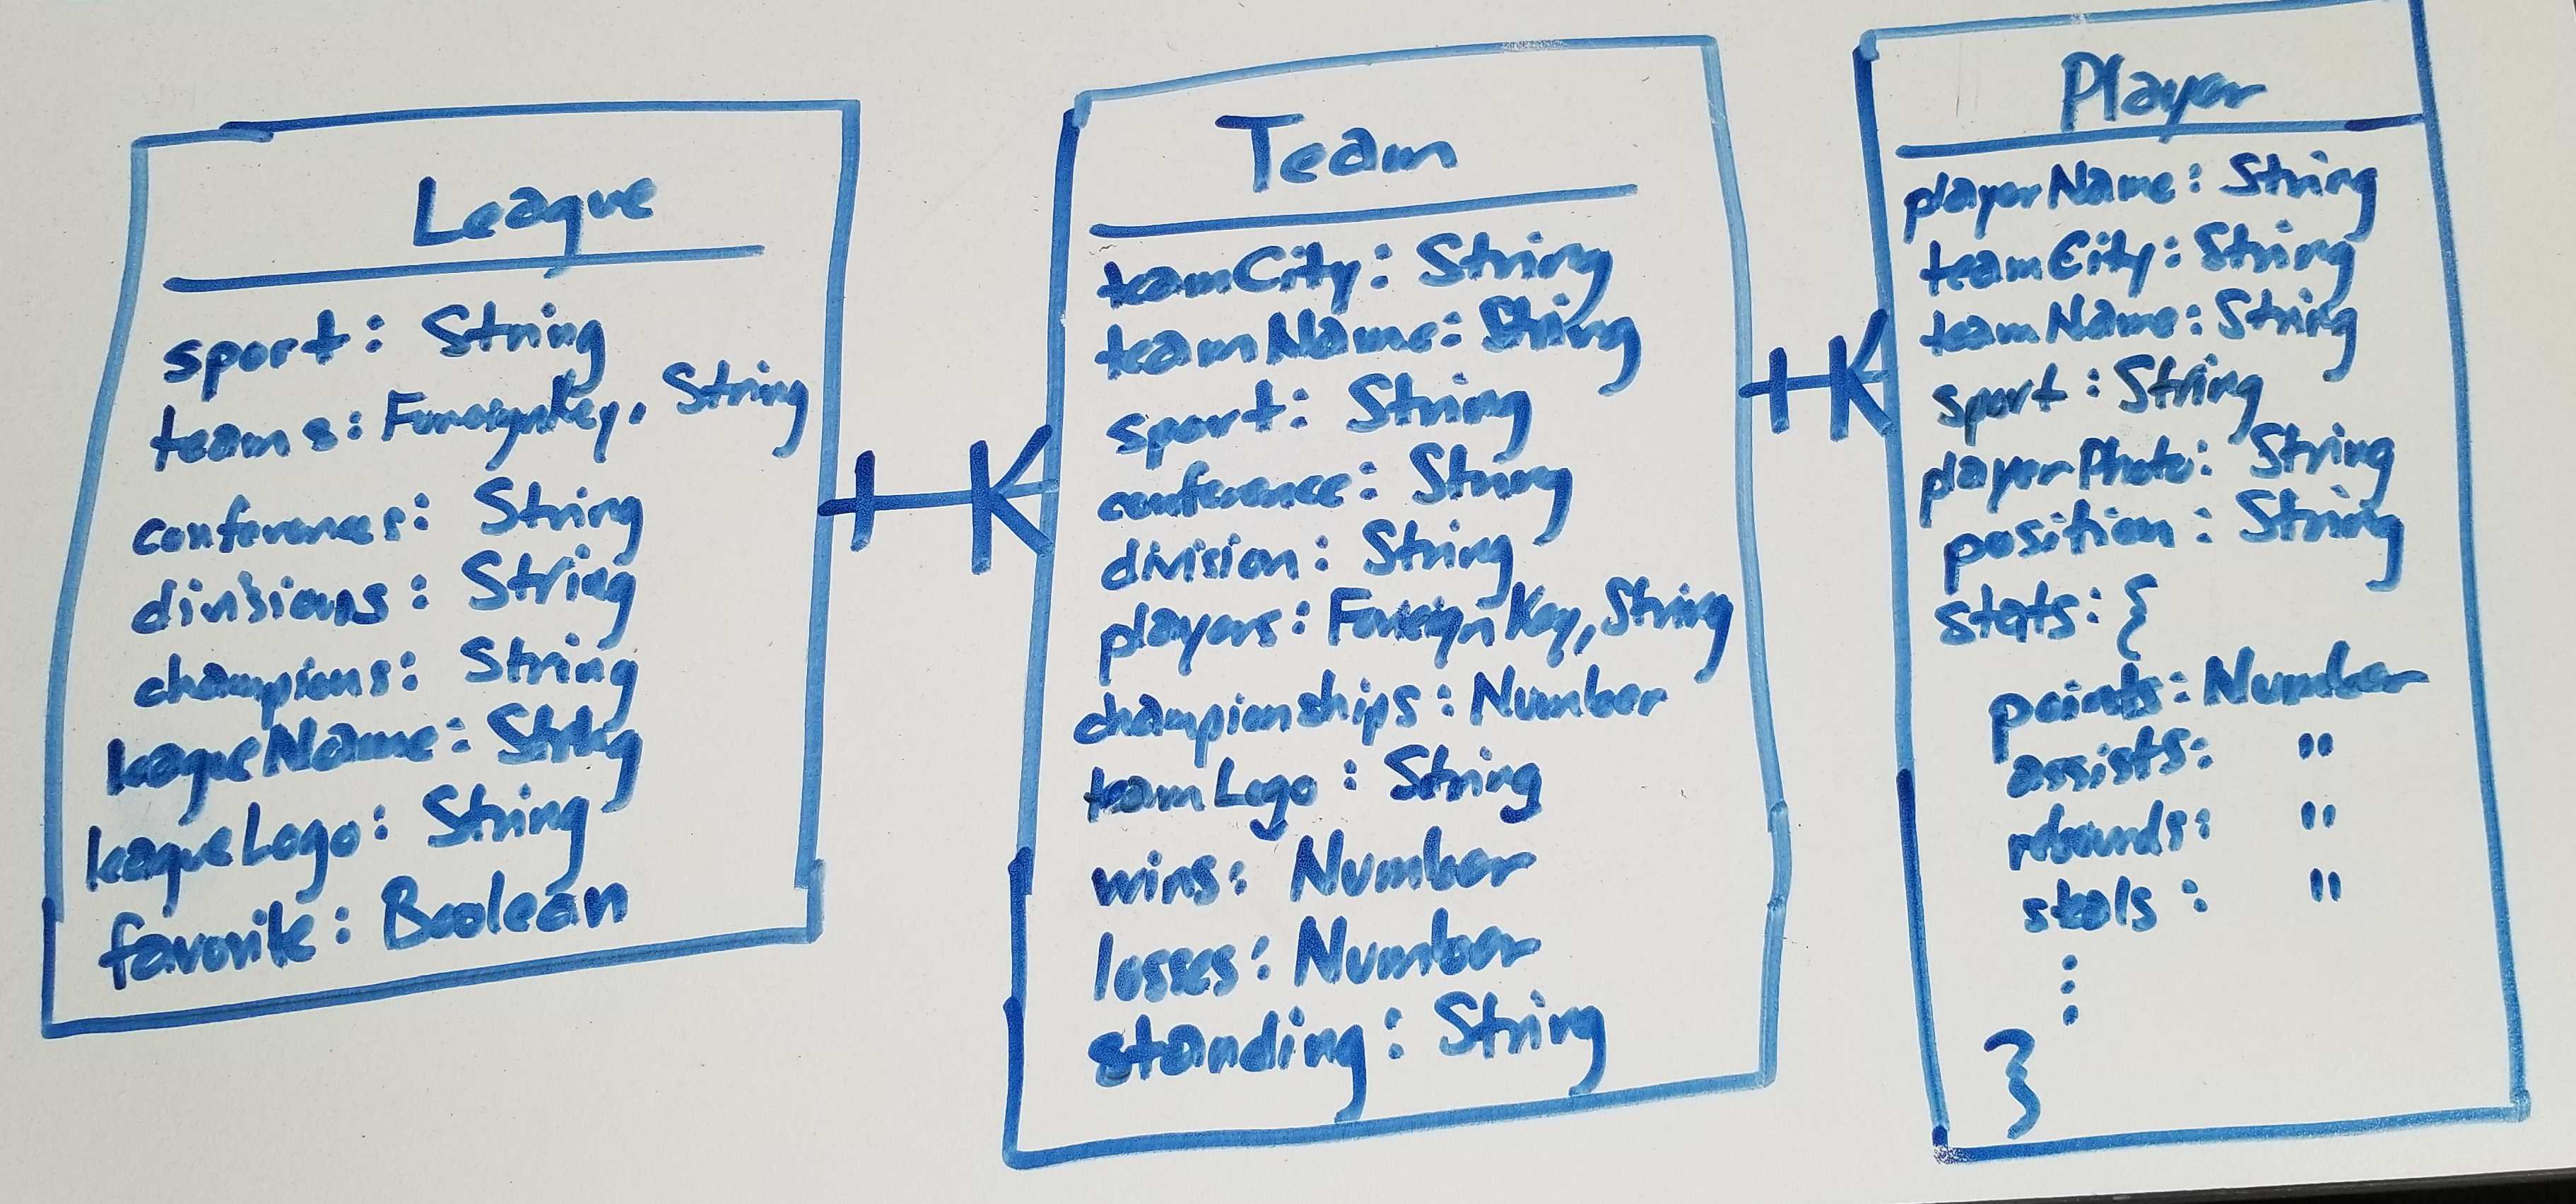 League
sport: String
teams: ForeignKey, String
conferences: String
divisions: String
champions: String
leagueName: String
leagueLogo: String
favorite: Boolean
Team
teamCity: String
teamName: String
sport: String
conference: String
division: String
players: ForeignKey, String
championships: Number
teamLogo: String
wins: Number
losses: Number
standing: String
Player
playerName: String
teamCity: String
teamName: String
sport: String
playerPhoto: String
position: String
stats: {
points: Number
assists: "
rebounds: "
steals: "
⋮
}